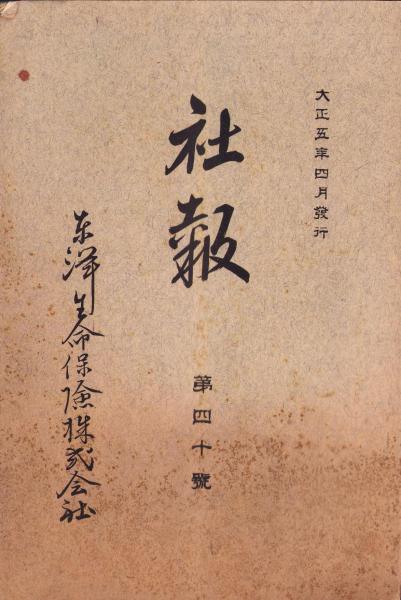 大正五年四月發行
社報
第四十號
东洋生命保險株式会社